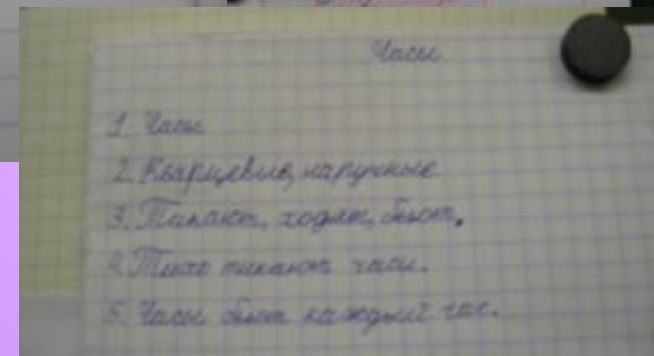 Часы
1. Часы
2. Кварцевые, наручные.
3. Тикают, ходят, бьют.
4. Тихо тикают часы.
5. Часы бьют каждый час.